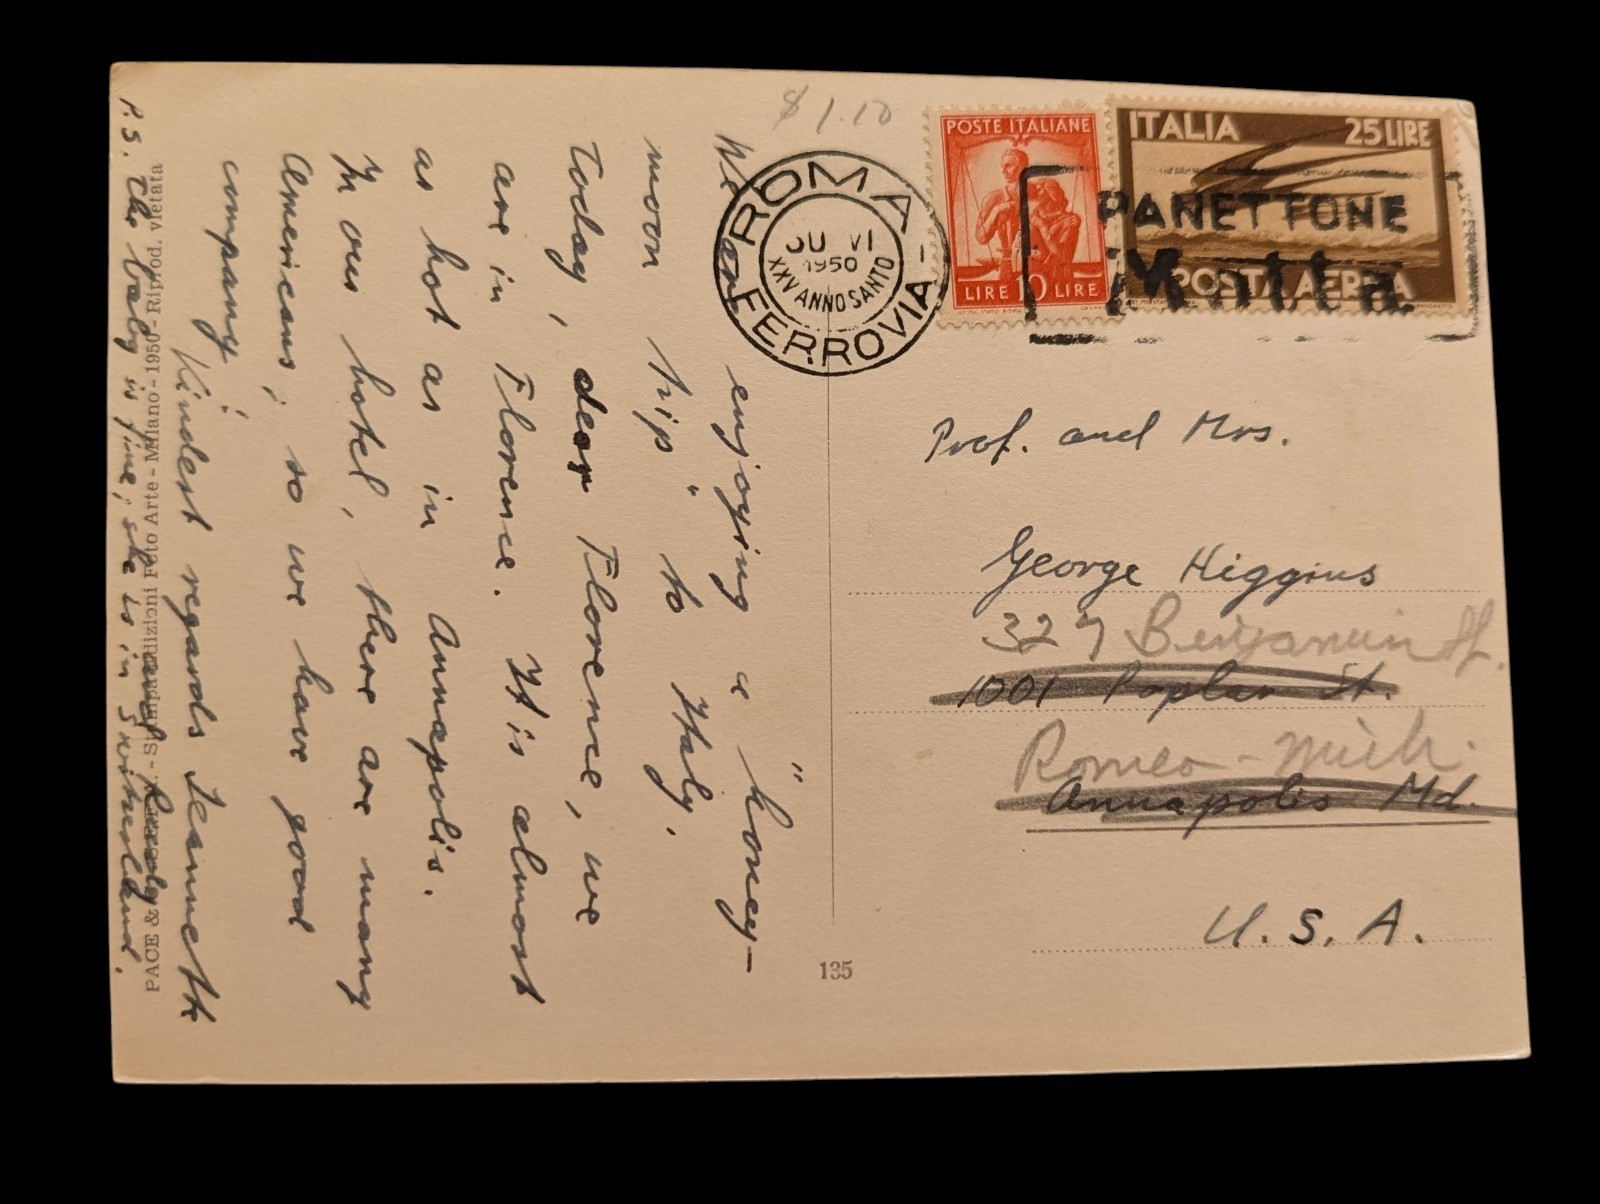 We are enjoying a "honey-
moon trip" to Italy.
Today, dear Florence, we
are in Florence. It is almost
as hot as in Annapolis.
In our hotel, there are many
Americans, so we have good
company!
Kindest regards Jeannette
and Rudy
P.S. The baby is fine, she is in Switzerland.
PACE & - Stampa Edizioni Foto Arte - Milano - 1950 - Riprod. vietata
135
$1.10
ROMA FERROVIA
VI
1950
XXV ANNO SANTO
POSTE ITALIANE
LIRE 10 LIRE
ITALIA 25 LIRE
POSTA AEREA
PANETTONE
Motta
Prof. and Mrs.
George Higgins
327 Benjamin St.
1001 Poplar St.
Romeo - Mich.
Annapolis Md.
U. S. A.